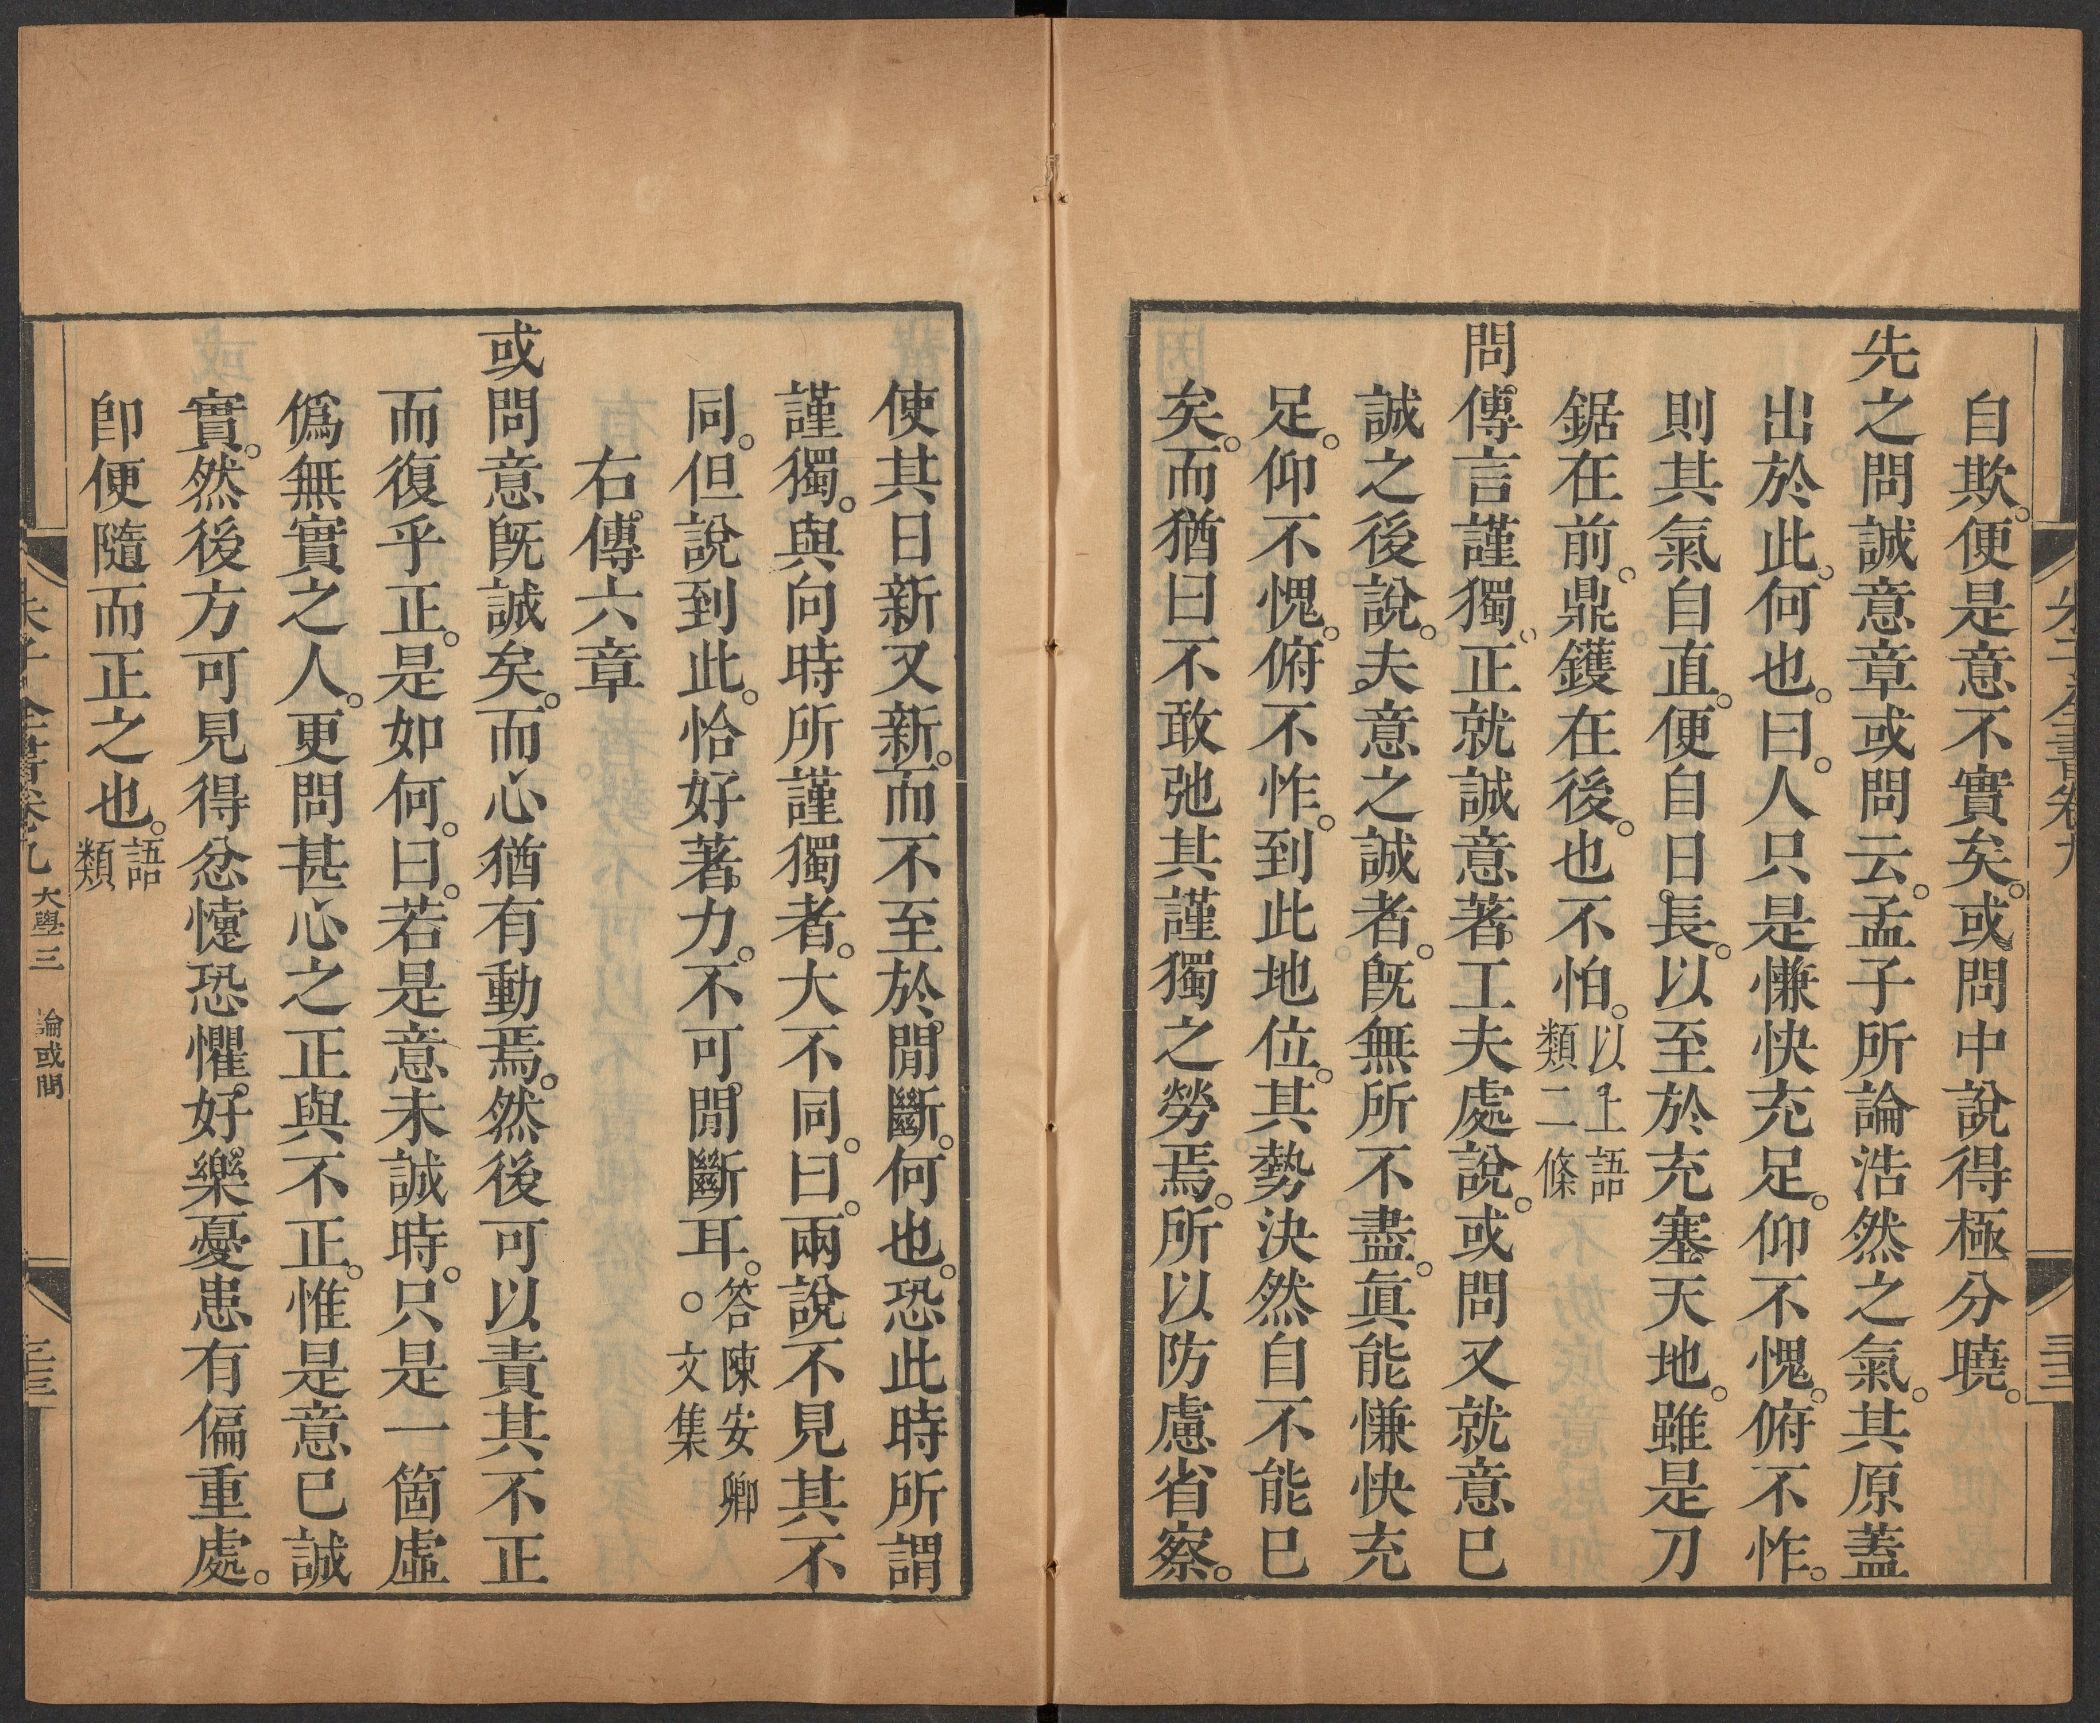 自欺。便是意不實矣。或問中說得極分曉。
先之問誠意章或問云。孟子所論浩然之氣。其原蓋
出於此。何也。曰。人只是慊快充足。仰不愧。俯不怍。
則其氣自直。便自日長。以至於充塞天地。雖是刀
鋸在前。鼎鑊在後。也不怕。以上語
類二條
問傳言謹獨。正就誠意著工夫處說。或問又就意已
誠之後說。夫意之誠者。旣無所不盡。眞能慊快充
足。仰不愧。俯不怍。到此地位。其勢決然自不能已
矣。而猶曰不敢弛其謹獨之勞焉。所以防慮省察。
使其日新又新。而不至於閒斷。何也。恐此時所謂
謹獨。與向時所謹獨者。大不同。曰。兩說不見其不
同。但說到此。恰好著力。不可閒斷耳。答陳安卿
○文集
右傳六章
或問意旣誠矣。而心猶有動焉。然後可以責其不正
而復乎正。是如何。曰。若是意未誠時。只是一箇虛
僞無實之人。更問甚心之正與不正。惟是意已誠
實。然後方可見得忿懥恐懼。好樂憂患有偏重處。
卽便隨而正之也。語
類
朱子全書卷九 大學三 論或問